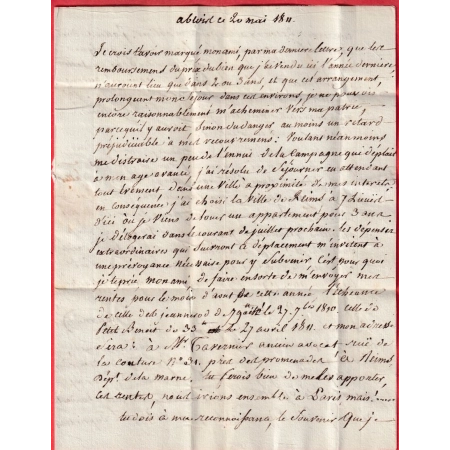 ablois ce 20 mai 1811.
Je crois t'avoir marqué mon ami, par ma derniere lettre, que le
remboursement du prix du bien que j'ai vendu ici l'année derniere
n'auroient lieu que dans 2 ou 3 ans, et que cet arrangement,
prolongeant mon sejour dans ces environs, je ne pouvois
encore raisonnablement m'acheminer vers ma patrie,
parcequ'il y auroit sinon du danger au moins un retard
préjudiciable à mes recouvremens: Voulant néanmoins
me distraire un peu de l'ennui de la Campagne qui déplait
à mon age avancé j'ai résolu de séjourner en attendant
tout bonnement dans une Ville à proximité de mes interets
en consequence j'ai choisi la Ville de Reims à 7 lieües
d'ici où je viens de louer un appartement pour 3 ans
je délogerai dans le courant de juillet prochain. les dépenses
extraordinaires qui suivront ce déplacement m'invitent à
une prévoyance nécessaire pour y subvenir C'est pour quoi
je te prie mon ami de faire ensorte de m'envoyer mes
rentes pour le mois d'aout de cette année l'echeance
de celle de 27. 7bre 1810. celle de
petit Benoit de 33 le 27 avril 1811. et mon adresse
sera: à Mr. Tavernier ancien avocat ruë de
la couture No. 31. près des promenades à Reims
Dépt. de la marne. tu ferois bien de me les apporter,
ces rentes, nous irions ensemble à Paris mais!
tu dois à ma reconnoissance, le souvenir que je